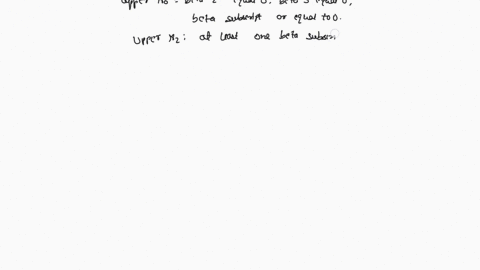 upper H0 : beta 2 equal 0, beta 3 equal 0,
beta subscript or equal to 0.
Upper H2 : at least one beta subscri